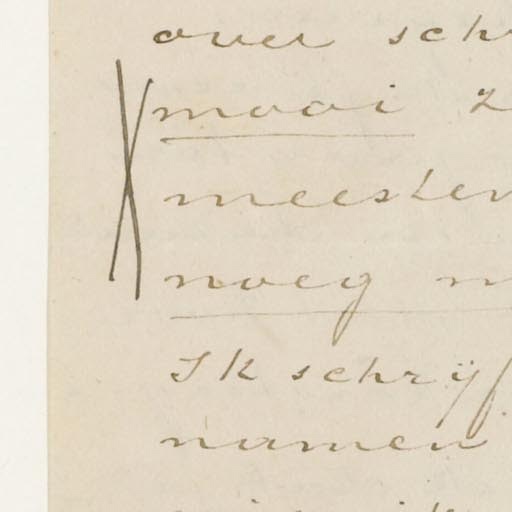 over sch
mooi z
meester
noeg
Ik schrijf
namen